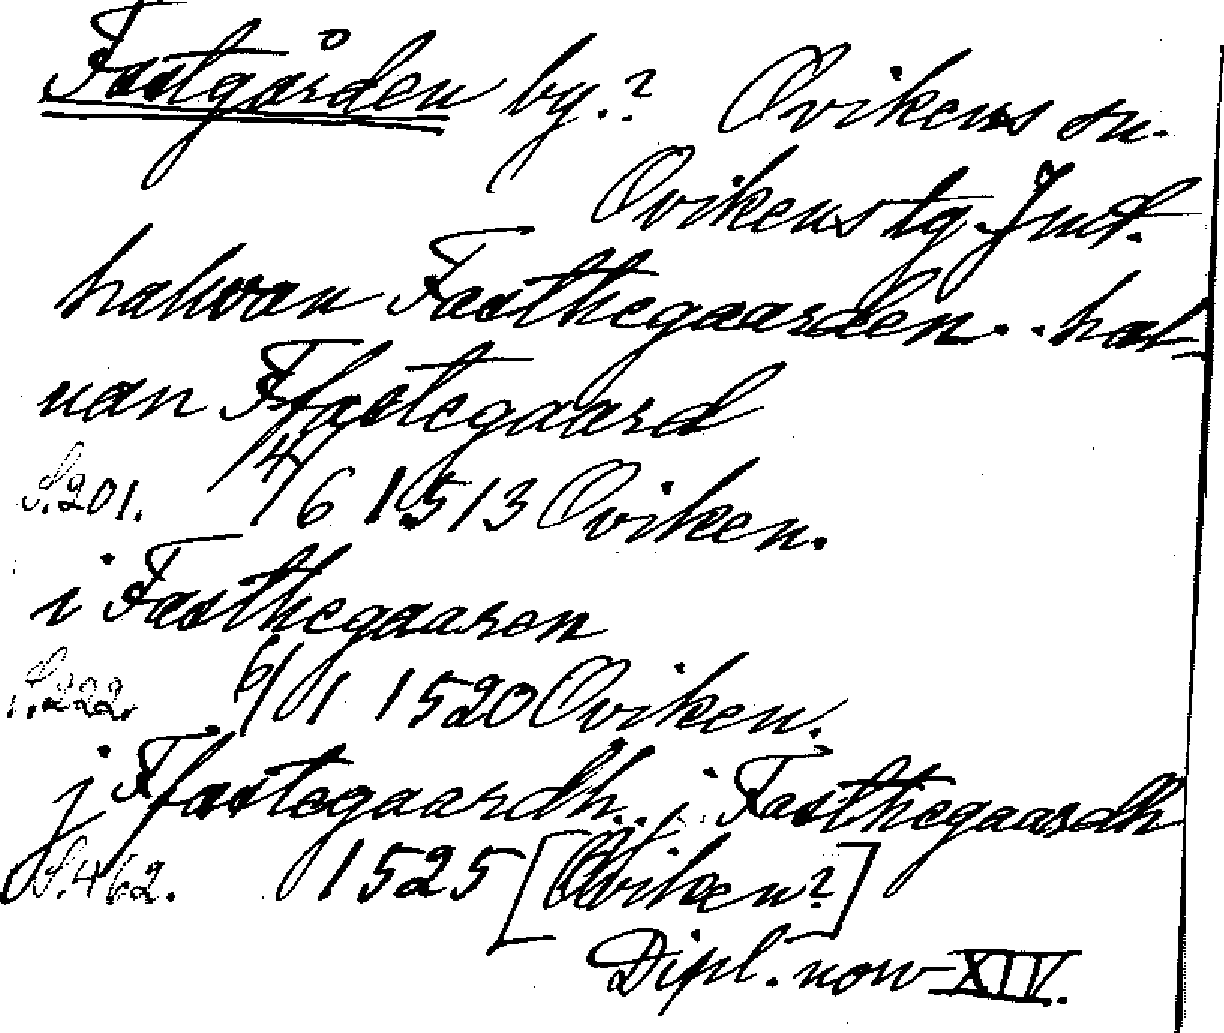 Fastgården by.? Ovikens sn.
Ovikens tg. Jmtl.
halwan Fasthegaarden .. hal-
uan Ffastegaard
S. 201. 14/6 1513 Oviken.
i Fasthegaaren
S. 222. 6/1 1520 Oviken.
j Ffastegaardh .. i Fasthegaardh
S. 462. 1525 [Oviken?]
Dipl. norv XIV.